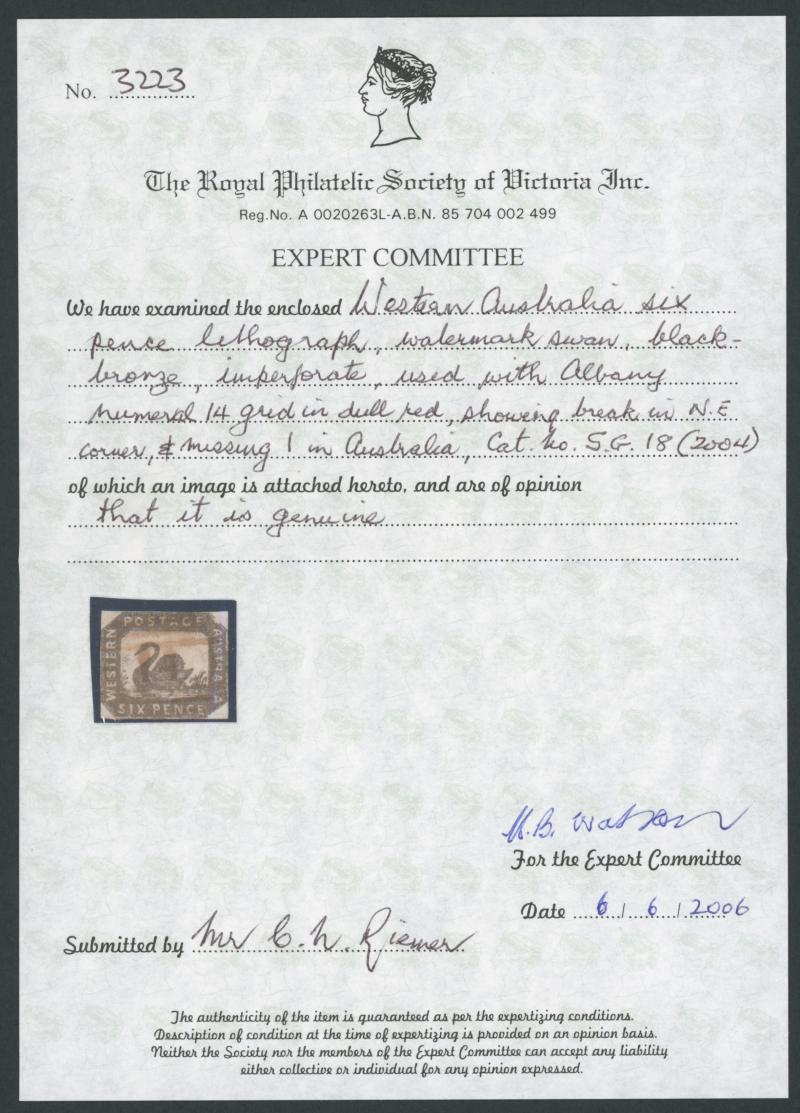 No. 3223
The Royal Philatelic Society of Victoria Inc.
Reg.No. A 0020263L-A.B.N. 85 704 002 499
EXPERT COMMITTEE
We have examined the enclosed Western Australia six
pence lithograph, watermark swan, black-
bronze, imperforate, used with Albany
numeral 14 grid in dull red, showing break in N.E
corner, & missing l in Australia, Cat. no. S.G. 18 (2004)
of which an image is attached hereto, and are of opinion
that it is genuine
POSTAGE
WESTERN
AUSTRALIA
SIX PENCE
M.B. Watson
For the Expert Committee
Date 6 / 6 / 2006
Submitted by Mr C. N. Riemer
The authenticity of the item is guaranteed as per the expertizing conditions.
Description of condition at the time of expertizing is provided on an opinion basis.
Neither the Society nor the members of the Expert Committee can accept any liability
either collective or individual for any opinion expressed.